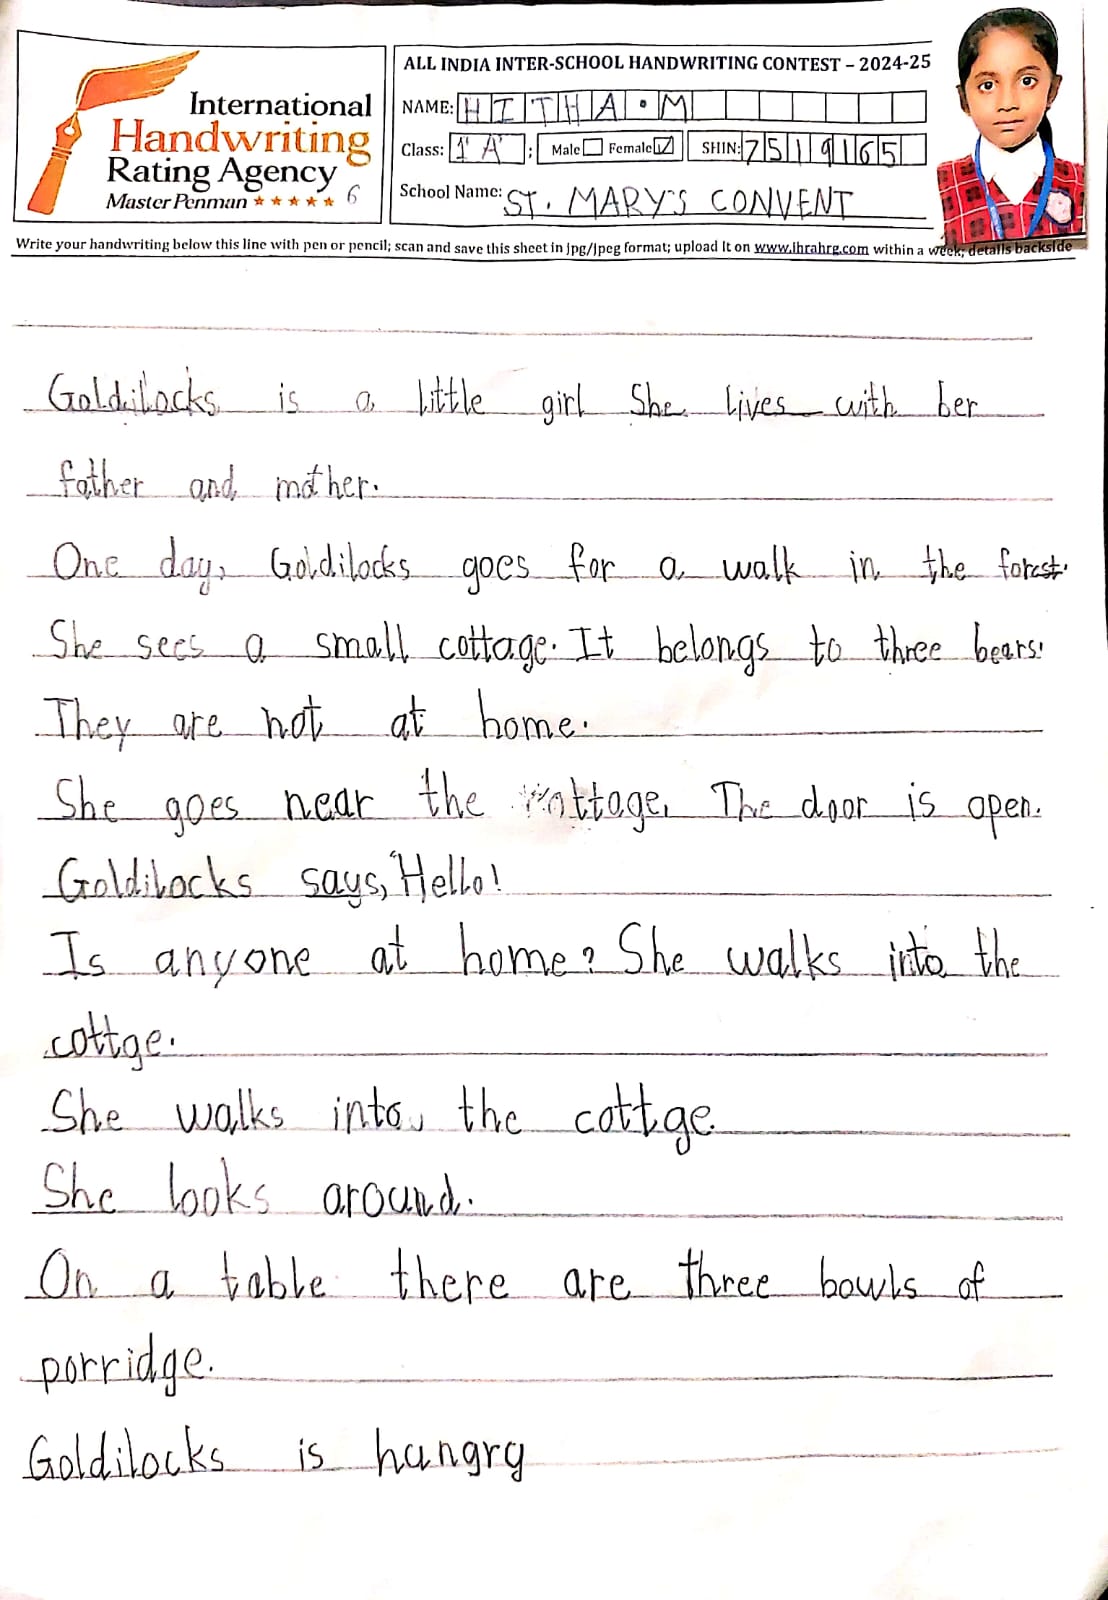 International
Handwriting
Rating Agency
Master Penman ★★★★★ 6
ALL INDIA INTER-SCHOOL HANDWRITING CONTEST – 2024-25
NAME: HITHA.M
Class: 1'A' : Male Female ✓ SHIN: 7519165
School Name: ST. MARY'S CONVENT
Write your handwriting below this line with pen or pencil; scan and save this sheet in jpg/jpeg format; upload it on www.ihrahrg.com within a week; details backside
Goldilocks is a little girl She lives with her
father and mother.
One day, Goldilocks goes for a walk in the forest.
She sees a small cottage. It belongs to three bears.
They are not at home.
She goes near the cottage. The door is open.
Goldilocks says, "Hello!
Is anyone at home? She walks into the
cottge.
She walks into the cottge.
She looks around.
On a table there are three bowls of
porridge.
Goldilocks is hungry